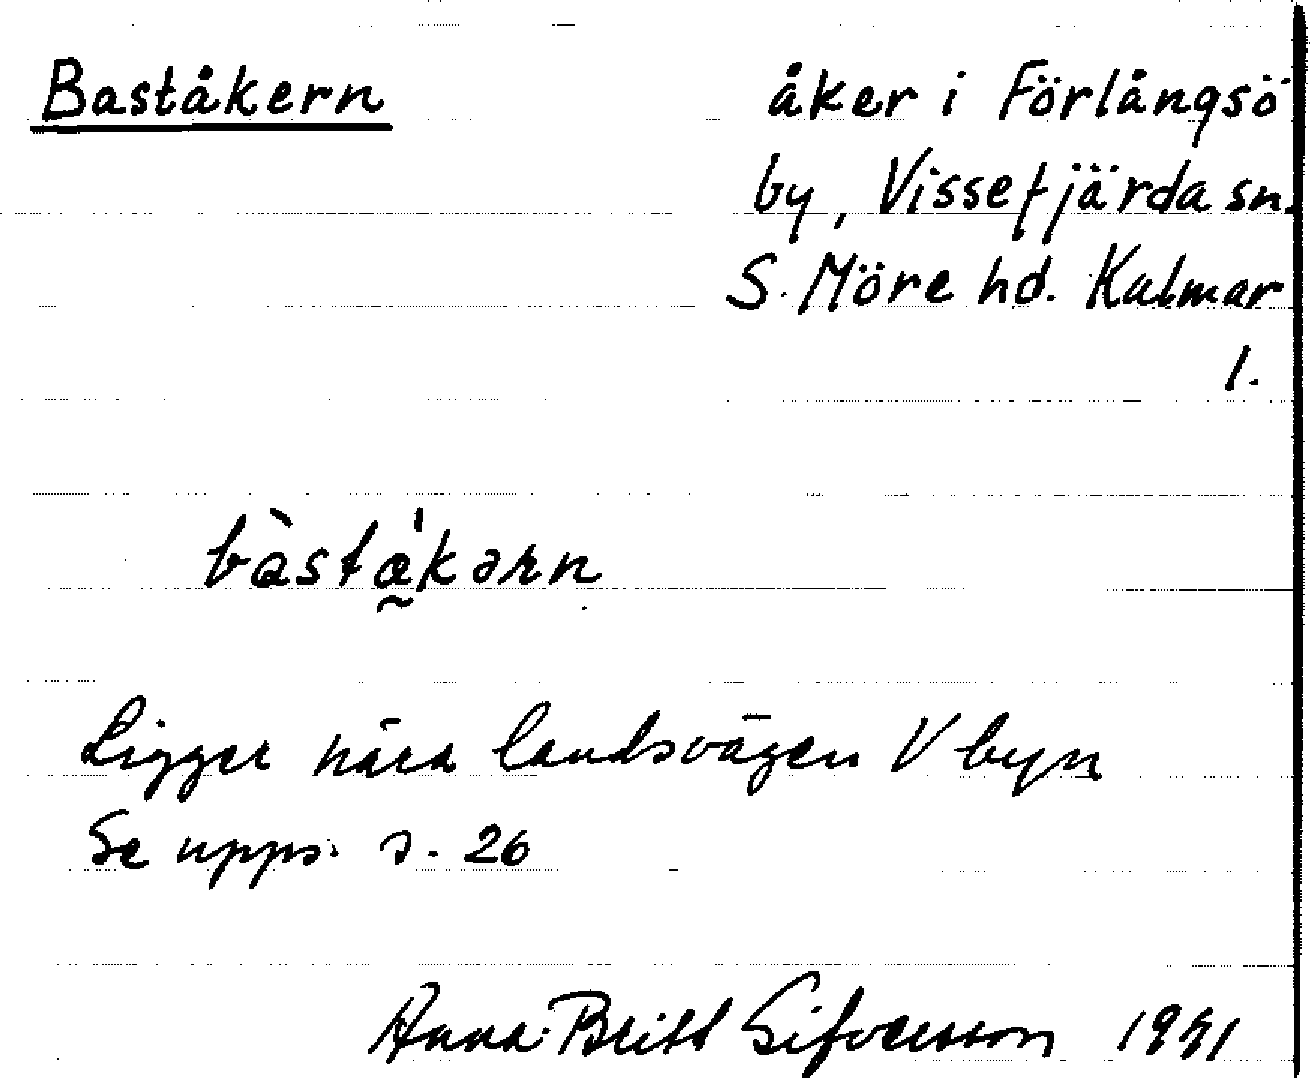 Baståkern
åker i Förlångsö
by, Vissefjärda sn.
S. Möre hd. Kalmar
l.
bàstákərn
Ligger nära landsvägen V byn
Se upps. s. 26
Anna-Britt Sifversson